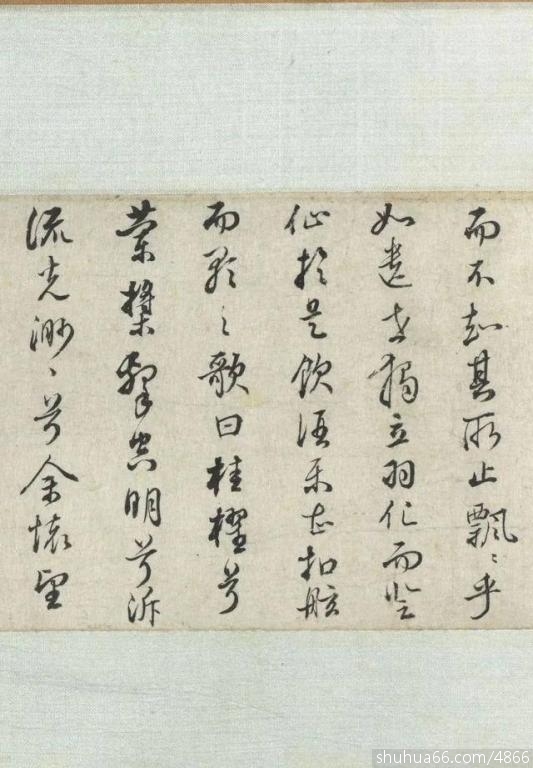 而不知其所止飄〻乎
如遺世獨立羽化而登
仙於是飲酒樂甚扣舷
而歌之歌曰桂櫂兮
蘭槳擊空明兮泝
流光渺〻兮余懷望
shuhua66.com/4866